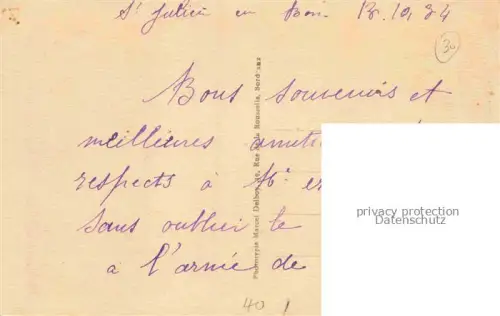 St Julien en Born 18.10.34
30
Bons souvenirs et
meilleures
respects à Mr et
sans oublier le
à l'armée de
Phototypie Marcel Delboy, Bordeaux
privacy protection
Datenschutz
40